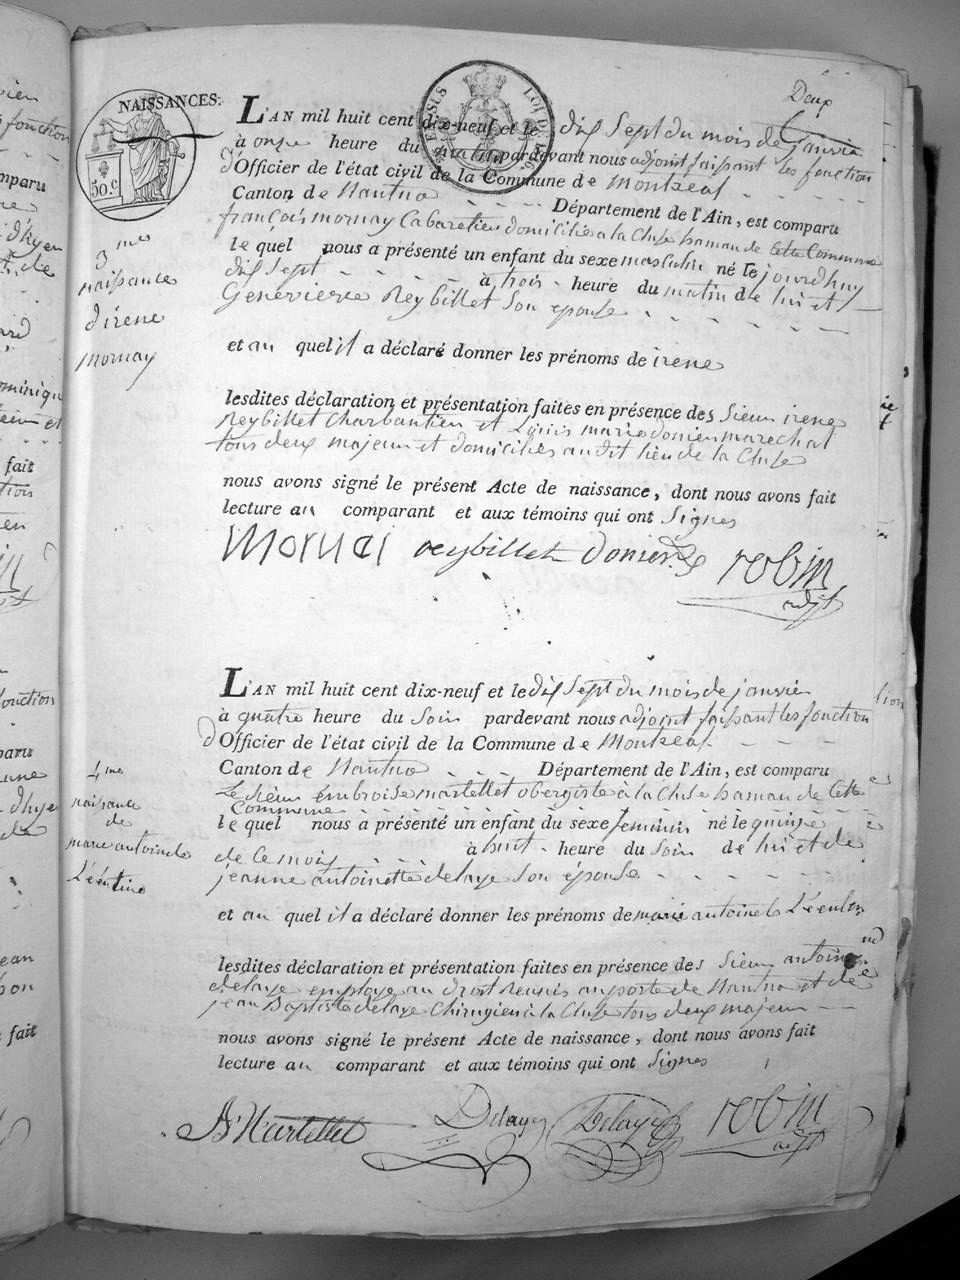 Deux
NAISSANCES.
50. c
L'AN mil huit cent dix-neuf et le dix Sept du mois de janvier
à onze heure du matin pardevant nous adjoint faissant les fonction
d'Officier de l'état civil de la Commune de Montreal
Canton de Nantua Département de l'Ain, est comparu
françois mornay Cabaretier domicilié a la Cluse hamau de Cette Commune
le quel nous a présenté un enfant du sexe masculin né le jourdhuy
dix Sept à trois heure du matin de lui et
Genevieve Reybillet Son epouse
et au quel il a déclaré donner les prénoms de irene
lesdites déclaration et présentation faites en présence des Sieur irene
Reybillet Charbantier et Louis marie donier marechal
tous deux majeur et domiciliés au dit lieu de la Cluse
nous avons signé le présent Acte de naissance, dont nous avons fait
lecture au comparant et aux témoins qui ont Signes
Mornai reybillet donier robin
adjt
3me
naissance
d'irene
mornay
L'AN mil huit cent dix-neuf et le dix Sept du mois de janvier
à quatre heure du Soir pardevant nous adjoint faissant les fonction
d'Officier de l'état civil de la Commune de Montreal
Canton de Nantua Département de l'Ain, est comparu
Le Sieur embroise martellet obergiste à la Cluse hamau de Cette
Commune
le quel nous a présenté un enfant du sexe feminin né le quinze
de Ce mois à huit heure du Soir de lui et de
jeanne antoinette delaye Son épouse
et au quel il a déclaré donner les prénoms de marie antoinete
lesdites déclaration et présentation faites en présence des Sieur antoine
delaye employe au droit Reunis au porte de Nantua et de
jean Baptiste delaye Chirugien à la Cluse tous deux majeur
nous avons signé le présent Acte de naissance, dont nous avons fait
lecture au comparant et aux témoins qui ont Signes
A. Martellet Delaye Delaye robin
adjt
4me
naissance
de
marie antoinete